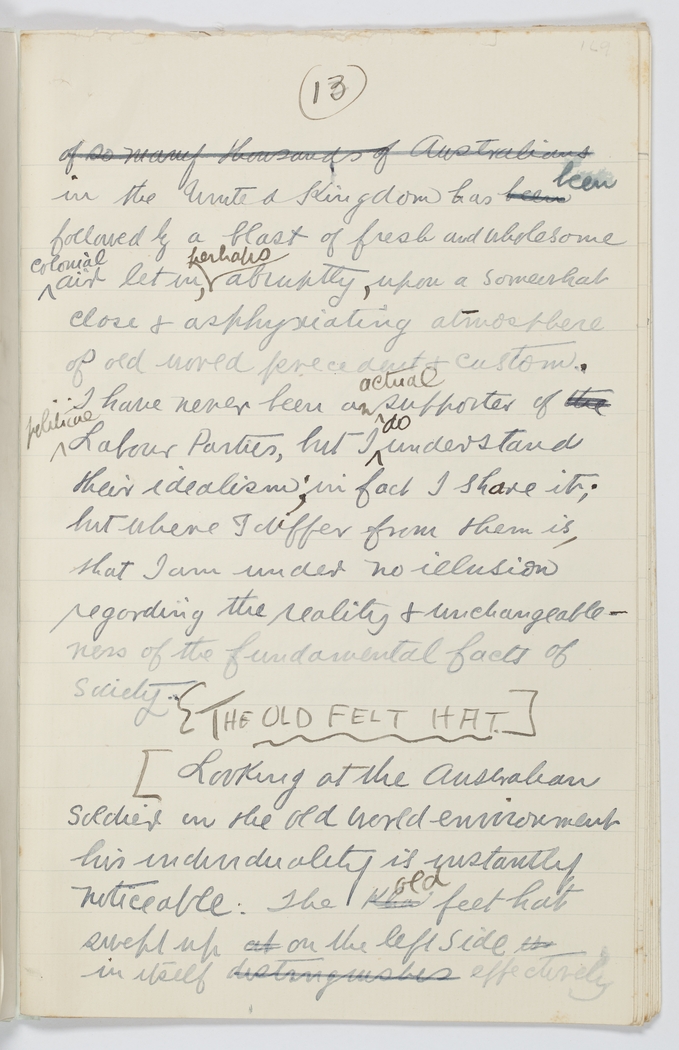 169
(13)
of so many thousands of Australians
in the United Kingdom has been been
followed by a blast of fresh and wholesome
colonial perhaps
air let in, abruptly, upon a somewhat
close & asphyxiating atmosphere
of old world precedent & custom.
actual
I have never been an supporter of the
political do
Labour Parties, but I understand
their idealism; in fact I share it;
but where I differ from them is,
that I am under no illusion
regarding the reality & unchangeable-
ness of the fundamental facts of
Society.
{THE OLD FELT HAT.]
[ Looking at the Australian
Soldier in the old world environment
his individuality is instantly
old
noticeable. The felt hat
swept up at on the left side
in itself distinguishes effectively